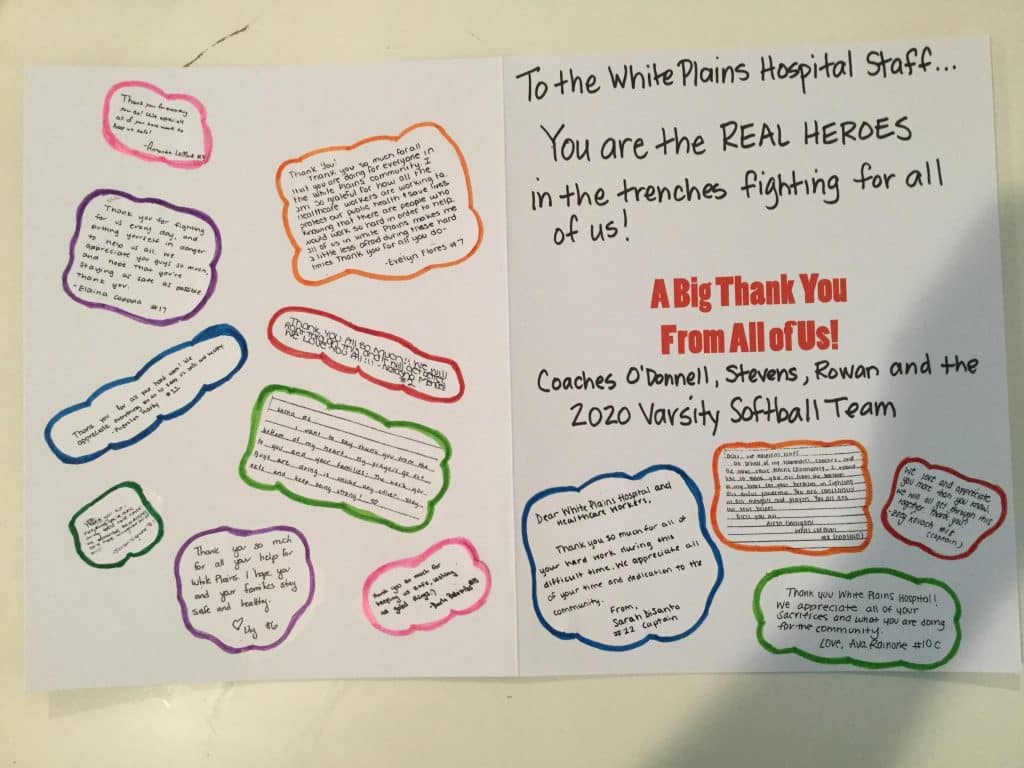 Thank you for everything
you do! We appreciate
all of your hard work to
keep us safe!
-Amanda
Thank You!
Thank you so much for all
that you are doing for everyone in
the White Plains community. I
am so grateful for how all the
healthcare workers are working to
protect our public health & save lives.
Knowing that there are people who
would work so hard in order to help
all of us in White Plains makes me
a little less afraid during these hard
times. Thank you for all you do-
-Evelyn Flores #7
Thank you for fighting
for us every day, and
putting yourself in danger
to help us all. We
appreciate you guys so much,
and hope that you're
staying as safe as possible
Thank you.
-Elaina #17
Thank You All so Much!! We will
get through this and it will get better
We LOVE YOU All!!!
#2
Thank you for all your hard work! We
appreciate everything you do to keep us safe and healthy
#11
want to say thank you from the
bottom of my heart. My prayers go out
to you and your families. The work you
guys are doing is unlike any other. Stay
safe and keep being strong!
Thank you so much
for all your help for
White Plains. I hope you
and your families stay
safe and healthy.
♡ #6
Thank you so much for
keeping us safe,
To the White Plains Hospital Staff...
You are the REAL HEROES
in the trenches fighting for all
of us!
A Big Thank You
From All of Us!
Coaches O'Donnell, Stevens, Rowan and the
2020 Varsity Softball Team
Dear White Plains Hospital and
Healthcare Workers,
Thank you so much for all of
your hard work during this
difficult time. We appreciate all
of your time and dedication to the
community.
From,
Sarah DiSanto
#22 Captain
Dear, WP Hospital Staff
On behalf of my teammates, coaches, and
the entire White Plains community, I would
like to thank you all from the bottom
of my heart for your heroism in fighting
this awful pandemic. You are constantly
in our thoughts and prayers. You all are
the true heroes.
(captain)
We love and appreciate
you more than you know.
We will all get through this
together. thank you!
(captain)
Thank you White Plains Hospital!
We appreciate all of your
sacrifices and what you are doing
for the community.
Love, Ava Rainone #10 C